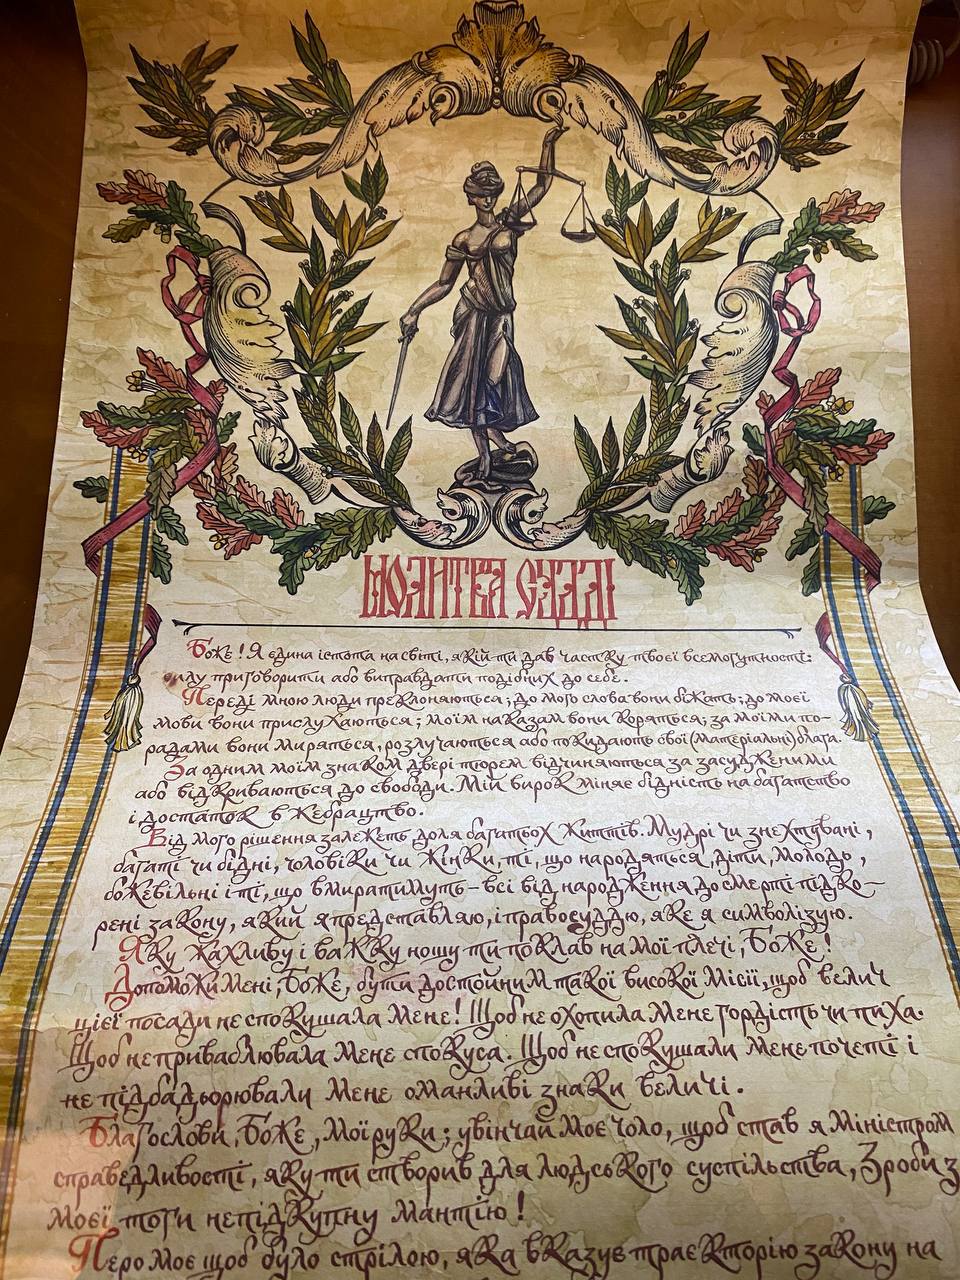 МОЛИТВА СУДДІ
Боже! Я єдина істота на світі, якій ти дав частку твоєї всемогутності:
силу приговорити або виправдати подібних до себе.
Переді мною люди преклоняються; до мого слова вони біжать; до моєї
мови вони прислухаються; моїм наказам вони коряться; за моїми по-
радами вони миряться, розлучаються або покидають свої (матеріальні) блага.
За одним моїм знаком двері тюрем відчиняються за засудженими
або відкриваються до свободи. Мій вирок міняє бідність на багатство
і достаток в жебрацтво.
Від мого рішення залежеть доля багатьох життів. Мудрі чи знехтувані,
багаті чи бідні, чоловіки чи жінки, ті, що народяться, діти, молодь,
божевільні і ті, що вмиратимуть – всі від народження до смерті підко-
рені закону, який я представляю, і правосуддю, яке я символізую.
Яку жахливу і важку ношу ти поклав на мої плечі, Боже!
Допоможи мені, Боже, бути достойним такої високої місії, щоб велич
цієї посади не спокушала мене! Щоб не охопила мене гордість чи пиха.
Щоб не приваблювала мене спокуса. Щоб не спокушали мене почеті і
не підбадьорювали мене оманливі знаки величі.
Благослови, Боже, мої руки; увінчай моє чоло, щоб став я Міністром
справедливості, яку ти створив для людського суспільства, Зроби з
моєї тоги непідкупну мантію!
Перо моє щоб було стрілою, яка вказує траєкторію закону на